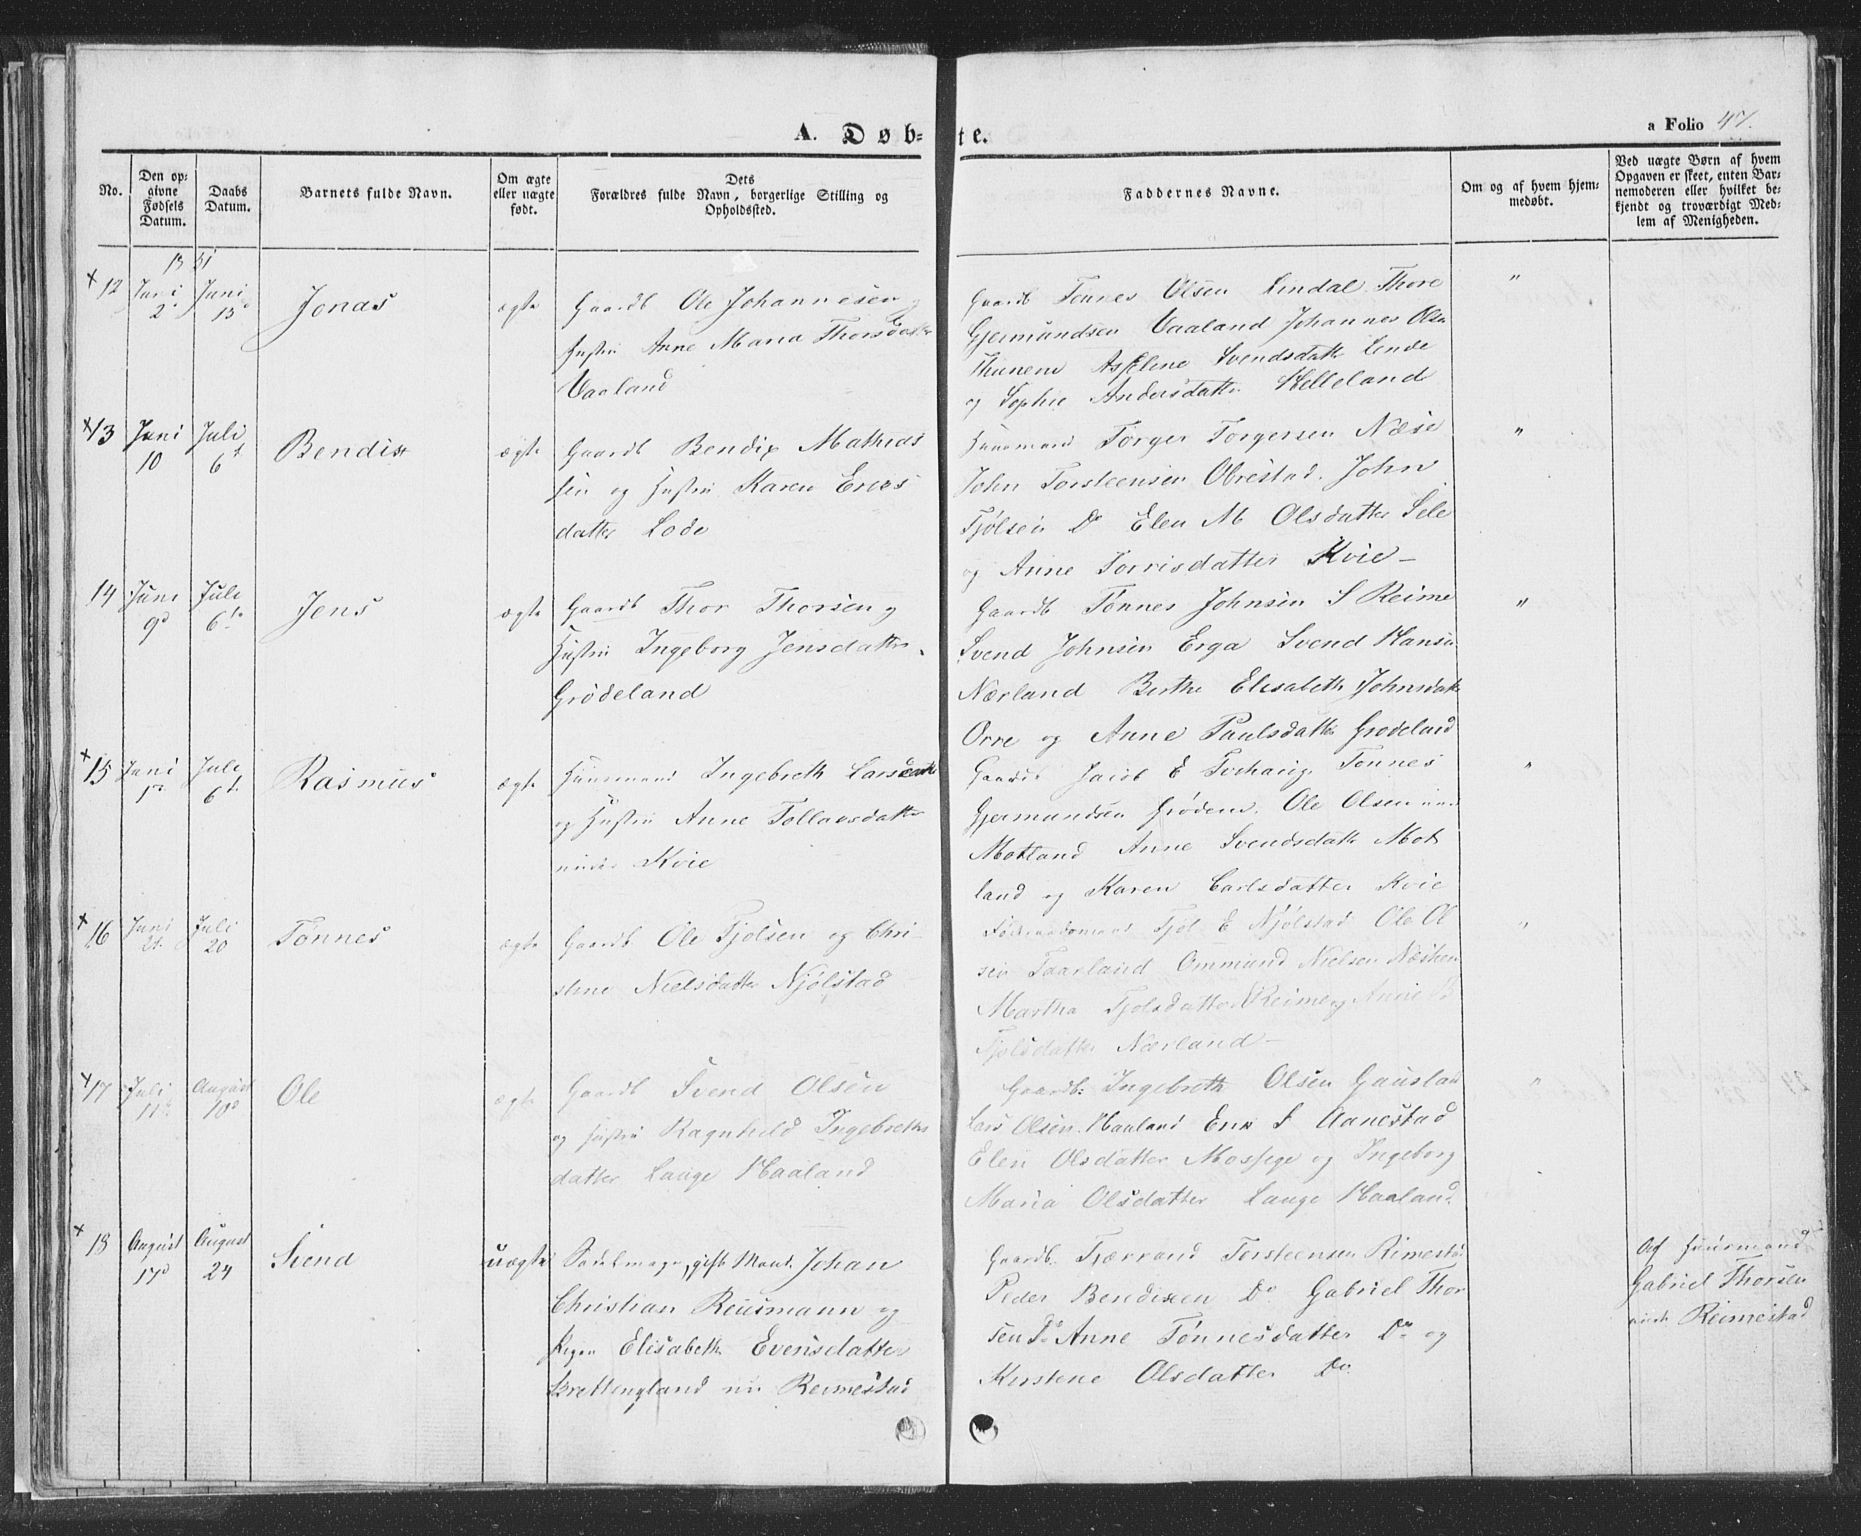 A. Døb-te.
a Folio 47.
No.
Den op-
givne
Fødsels
Datum.
Daabs
Datum.
Barnets fulde Navn.
Om ægte
eller uægte
født.
Dets
Forældres fulde Navn, borgerlige Stilling og
Opholdssted.
Faddernes Navne.
Om og af hvem hjem-
medøbt.
Ved uægte Børn af hvem
Opgaven er skeet, enten Bar-
nemoderen eller hvilket be-
kjendt og troværdigt Med-
lem af Menigheden.
12 Juni 2 Juni 15 Jonas ægte
Gaardb Ole Johannesen
Hustru Anne Maria Thorsdatter
Vaaland
Gaardb Tønnes Olsen Lindal Thore
Gjermundsen Vaaland Johannes Olsn
Asseline Svendsdatt Lende
og Sophie Andersdatter Helleland
"
13 Juni 10 Juli 6 Bendix ægte
Gaardb Bendix Mathias
sen og Hustru Karen Erics
datter Lode
Huusmand Torger Torgersen Næse
John Torsteensen Obrestad. John
Tjølsen Do Elen M Olsdatter Sele
og Anne Torrisdatter Kvie
"
14 Juni 9 Juli 6te Jens ægte
Gaardb Thor Thorsen og
Hustru Ingeborg Jensdatter
Grødeland
Gaardb Tønnes Johnsen S Reime
Svend Johnsen Erga Svend Hansen
Nærland Berthe Elisabeth Johnsdatt
Orre og Anne Paulsdatter Grødeland
"
15 Juni Juli 6 Rasmus ægte
Huusmand Ingebreth Larsen
og Hustru Anne Tollaksdatter
under Kvie
Gaardb Jacob E Tvihaug Tønnes
Gjermundsen Grødem. Ole Olsen
Motland Anne Svendsdatt Mot
land og Karen Carlsdatter Kvie
"
16 Juni 21 Juli 20 Tønnes ægte
Gaardb Ole Tjølsen og Chri
stine Nielsdatter Njølstad
Tjøl E Njølstad Ole Ol
sen Taarland Ommund Nielsen Næsheim
Martha Tjølsdatter Reime og Anne
Tjølsdatter Nærland
17 Juli 11 August 10 Ole ægte
Gaardb Svend Olsen
og Hustru Ragnhild Ingebreths
datter Lauge Haaland
Gaardb: Ingebreth Olsen Gausland
Lars Olsen Haaland Erik S Aanestad
Elen Olsdatter Mossige og Ingeborg
Maria Olsdatter Lauge Haaland
"
18 August 17 August 24 Svend uægte
Sadelmager, gift Mand. Johan
Christian Reusmann og
Pigen Elisabeth Evensdatter
Brettingland nu Reimestad
Gaardb. Tjærrand Torsteensen Rimestad
Peder Bendixen Do Gabriel Thor
sen Do Anne Tønnesdatter Do og
Kirstene Olsdatter Do
Af Huusmand
Gabriel Thorsen
under Reimestad